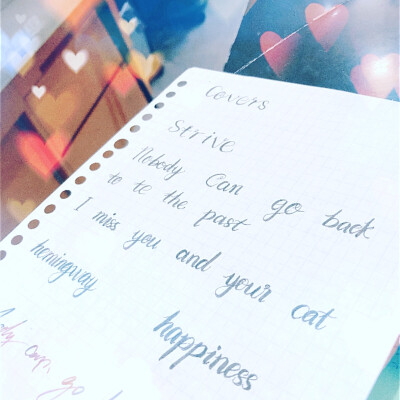 Covers
Strive
Nobody can go back
to te the past
I miss you and your cat
hemingway
happiness
go